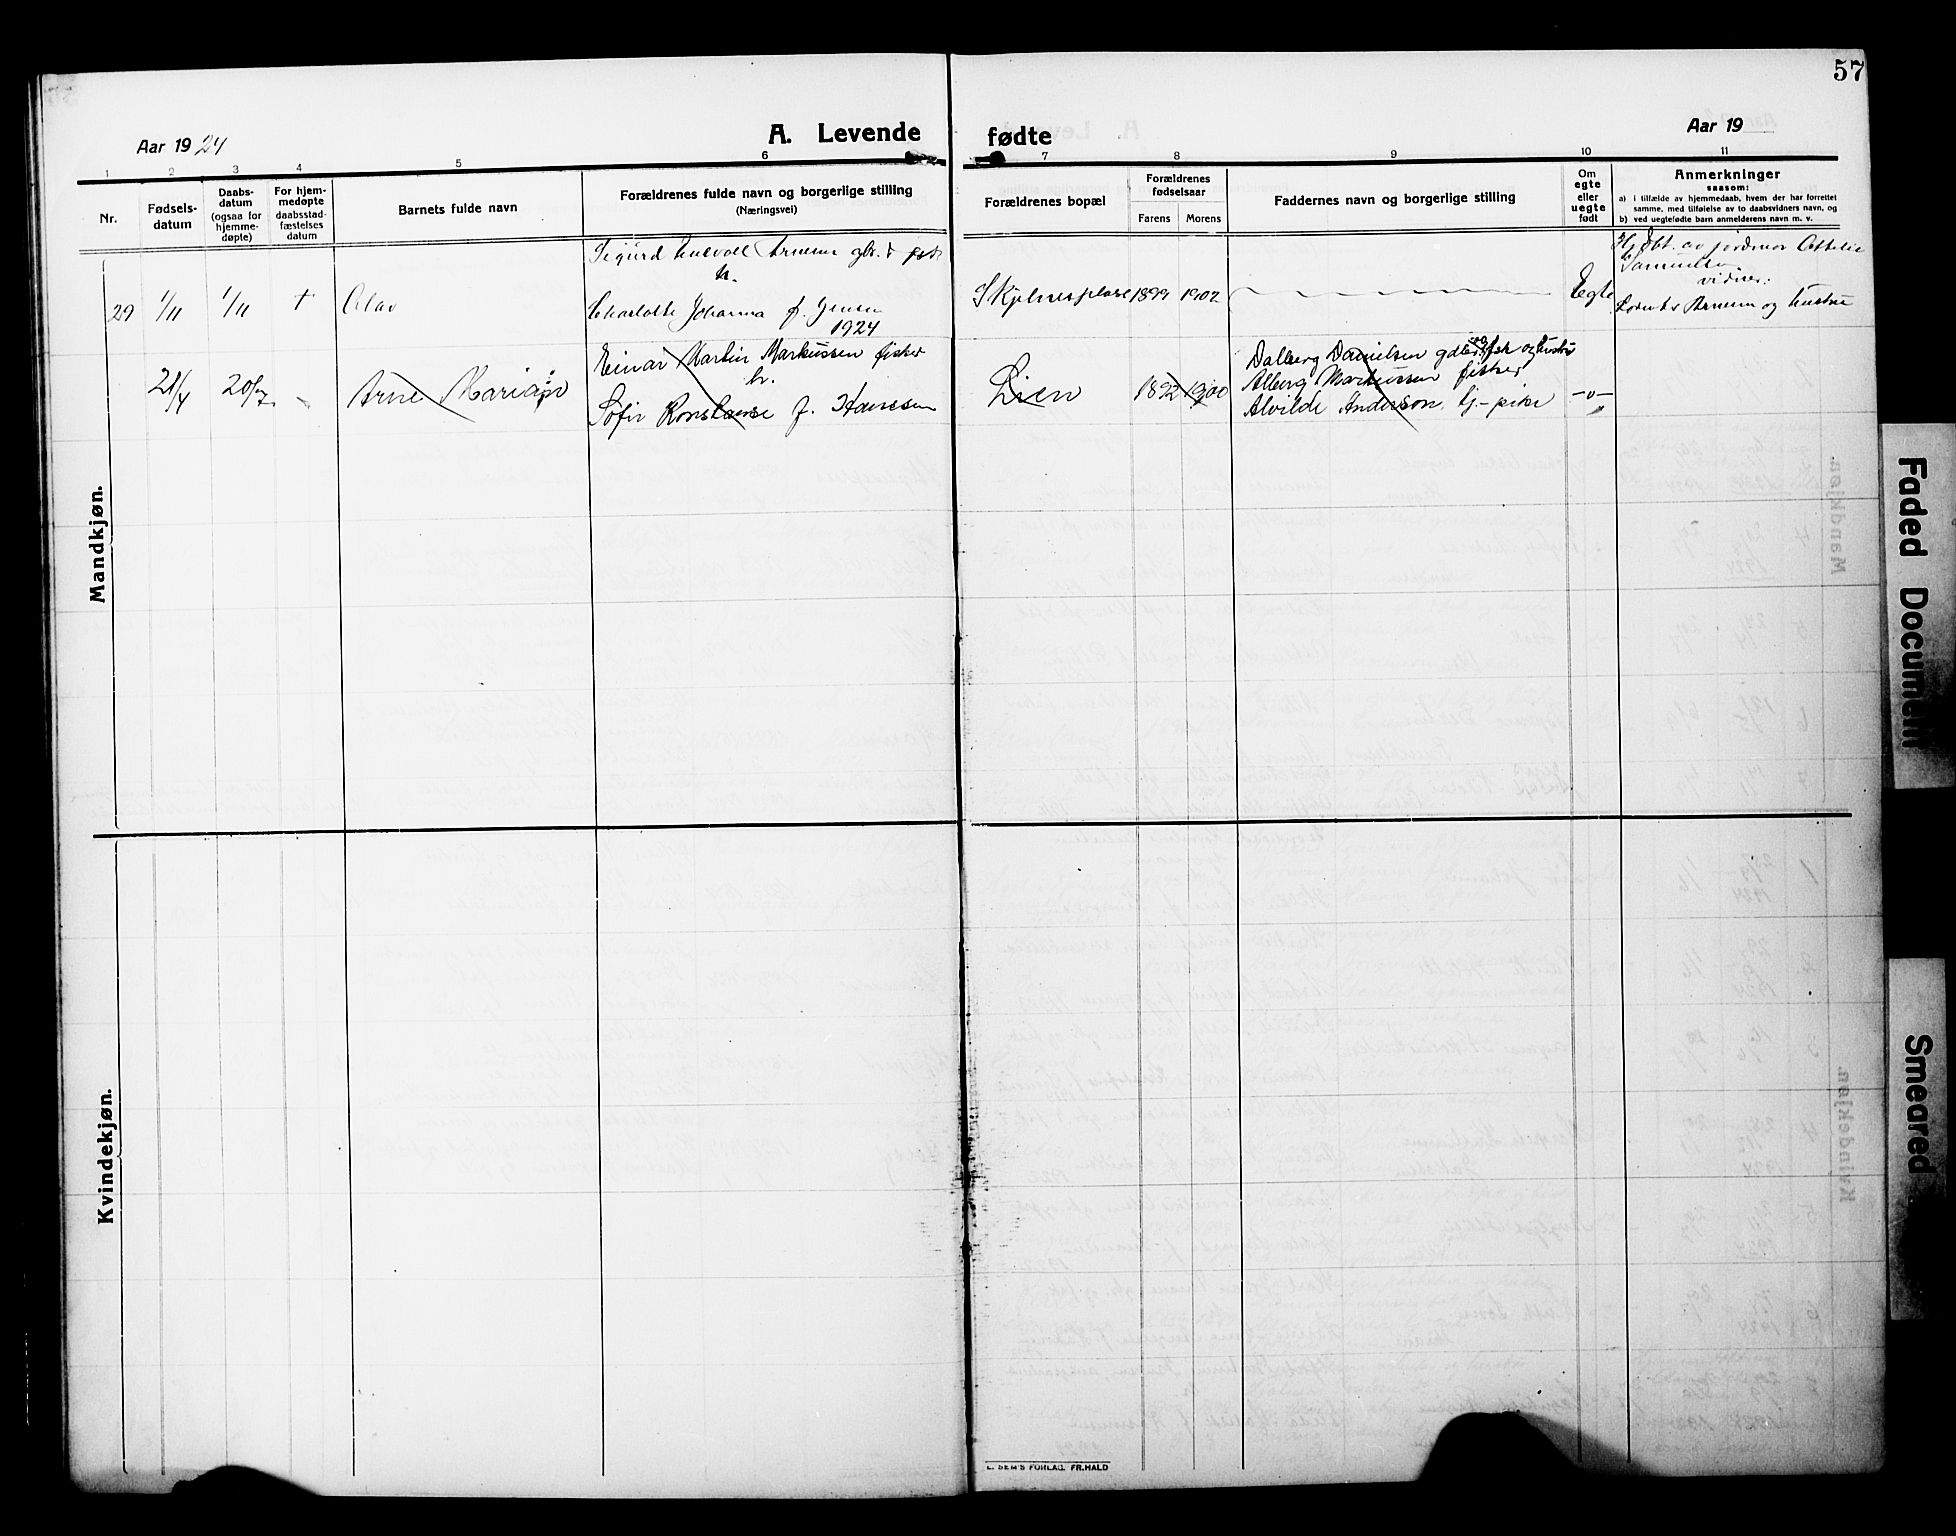 57
Aar 1924
A. Levende
fødte
Aar 19
1 2 3 4 5 6 7 8 9 10 11
Nr.
Fødsels-
datum
Daabs-
datum
(ogsaa for
hjemme-
døpte)
For hjem-
medøpte
daabsstad-
fæstelses
datum
Barnets fulde navn
Forældrenes fulde navn og borgerlige stilling
(Næringsvei)
Forældrenes bopæl
Forældrenes
fødselsaar
Farens Morens
Faddernes navn og borgerlige stilling
Om
egte
eller
uegte
født
Anmerkninger
saasom:
a) i tilfælde av hjemmedaab, hvem der har forrettet
samme, med tilføielse av to daabsvidners navn, og
b) ved uegtefødte barn anmelderens navn m. v.
Mandkjøn.
29 1/11 1/11 + Olav
Sigurd Arnesen gbr.
h.
Charlotte Johanna f. Jensen
1924
1899 1902
Egte
av jordmor
Samuelsen
vidner:
Arnesen og hustru
21/4 20/7 Arne Marian
Einar Martin Markussen fisker
h.
Sofie Konstanse f. Hanssen
Lien
1892 1900
Dalberg Danielsen og hustru
Alberg Markussen fisker
Alvilde Anderson, tj.-pike
-o-
Kvindekjøn.
E. SEM'S FORLAG. FR.HALD
Faded Document
Smeared